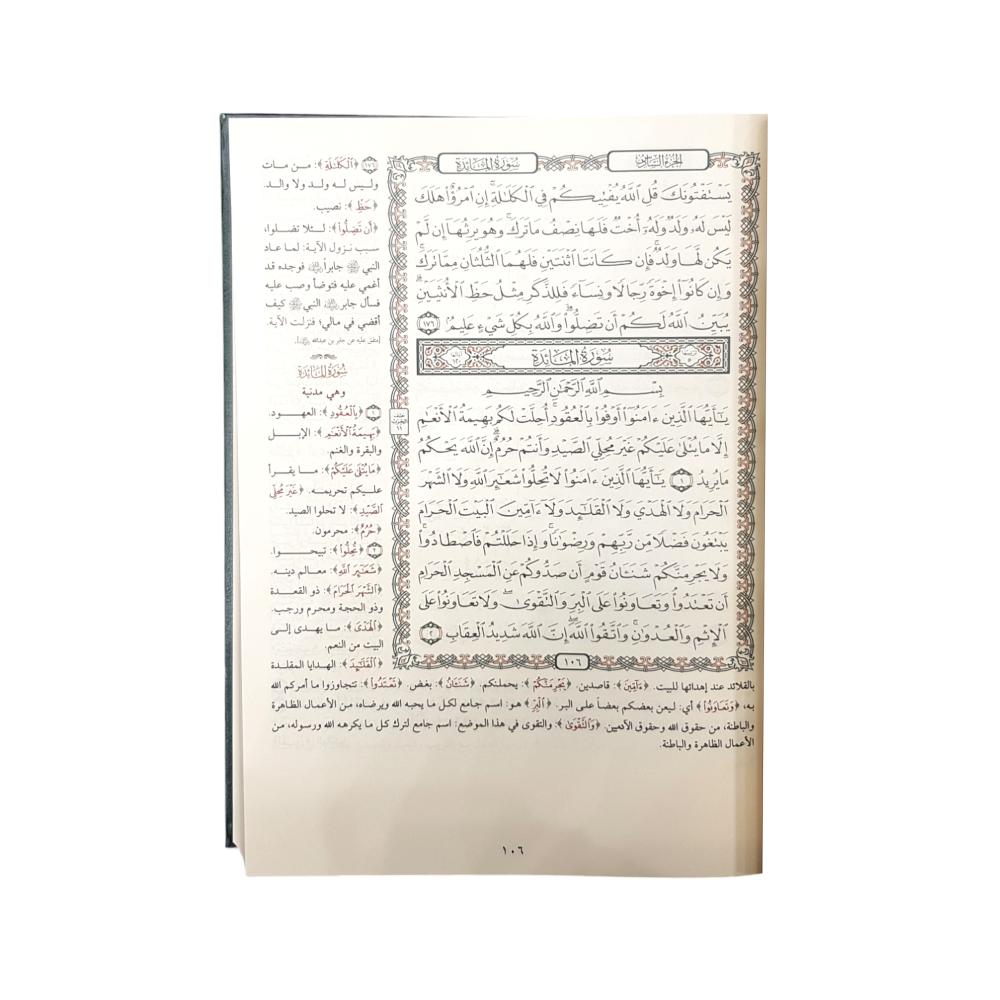 الجزء السادس
سورة المائدة
يَسْتَفْتُونَكَ قُلِ اللَّهُ يُفْتِيكُمْ فِي الْكَلَٰلَةِ ۚ إِنِ امْرُؤٌا۟ هَلَكَ
لَيْسَ لَهُۥ وَلَدٌ وَلَهُۥٓ أُخْتٌ فَلَهَا نِصْفُ مَا تَرَكَ ۚ وَهُوَ يَرِثُهَآ إِن لَّمْ
يَكُن لَّهَا وَلَدٌ ۚ فَإِن كَانَتَا اثْنَتَيْنِ فَلَهُمَا الثُّلُثَانِ مِمَّا تَرَكَ ۚ
وَإِن كَانُوٓا۟ إِخْوَةً رِّجَالًا وَنِسَآءً فَلِلذَّكَرِ مِثْلُ حَظِّ الْأُنثَيَيْنِ ۗ
يُبَيِّنُ اللَّهُ لَكُمْ أَن تَضِلُّوا۟ ۗ وَاللَّهُ بِكُلِّ شَيْءٍ عَلِيمٌۢ ١٧٦
سُورَةُ المَائِدَة
بِسْمِ اللَّهِ الرَّحْمَٰنِ الرَّحِيمِ
يَٰٓأَيُّهَا الَّذِينَ ءَامَنُوٓا۟ أَوْفُوا۟ بِالْعُقُودِ ۚ أُحِلَّتْ لَكُم بَهِيمَةُ الْأَنْعَٰمِ
إِلَّا مَا يُتْلَىٰ عَلَيْكُمْ غَيْرَ مُحِلِّي الصَّيْدِ وَأَنتُمْ حُرُمٌ ۗ إِنَّ اللَّهَ يَحْكُمُ
مَا يُرِيدُ ١ يَٰٓأَيُّهَا الَّذِينَ ءَامَنُوا۟ لَا تُحِلُّوا۟ شَعَٰٓئِرَ اللَّهِ وَلَا الشَّهْرَ
الْحَرَامَ وَلَا الْهَدْيَ وَلَا الْقَلَٰٓئِدَ وَلَآ ءَآمِّينَ الْبَيْتَ الْحَرَامَ
يَبْتَغُونَ فَضْلًا مِّن رَّبِّهِمْ وَرِضْوَٰنًا ۚ وَإِذَا حَلَلْتُمْ فَاصْطَادُوا۟ ۚ
وَلَا يَجْرِمَنَّكُمْ شَنَـَٔانُ قَوْمٍ أَن صَدُّوكُمْ عَنِ الْمَسْجِدِ الْحَرَامِ
أَن تَعْتَدُوا۟ ۘ وَتَعَاوَنُوا۟ عَلَى الْبِرِّ وَالتَّقْوَىٰ ۖ وَلَا تَعَاوَنُوا۟ عَلَى
الْإِثْمِ وَالْعُدْوَٰنِ ۚ وَاتَّقُوا۟ اللَّهَ ۖ إِنَّ اللَّهَ شَدِيدُ الْعِقَابِ ٢
١٠٦
١٧٦ ﴿الْكَلَٰلَةِ﴾: من مات
وليس له ولد ولا والد.
﴿حَظِّ﴾: نصيب.
﴿أَن تَضِلُّوا۟﴾: لئلا تضلوا،
سبب نزول الآية: لما عاد
النبي ﷺ جابراً رضي الله عنه فوجده قد
أغمي عليه فتوضأ وصب عليه
فسأل جابر النبي ﷺ كيف
أقضي في مالي؛ فنزلت الآية.
[متفق عليه عن جابر بن عبدالله رضي الله عنه]
سُورَةُ المَائِدَة
وهي مدنية
١ ﴿بِالْعُقُودِ﴾: العهود.
﴿بَهِيمَةُ الْأَنْعَٰمِ﴾: الإبل
والبقرة والغنم.
﴿مَا يُتْلَىٰ عَلَيْكُمْ﴾: ما يقرأ
عليكم تحريمه. ﴿غَيْرَ مُحِلِّي
الصَّيْدِ﴾: لا تحلوا الصيد.
﴿حُرُمٌ﴾: محرمون.
٢ ﴿تُحِلُّوا۟﴾: تبيحوا.
﴿شَعَٰٓئِرَ اللَّهِ﴾: معالم دينه.
﴿الشَّهْرَ الْحَرَامَ﴾: ذو القعدة
وذو الحجة ومحرم ورجب.
﴿الْهَدْيَ﴾: ما يهدى إلى
البيت من النعم.
﴿الْقَلَٰٓئِدَ﴾: الهدايا المقلدة
بالقلائد عند إهدائها للبيت. ﴿ءَآمِّينَ﴾: قاصدين. ﴿يَجْرِمَنَّكُمْ﴾: يحملنكم. ﴿شَنَـَٔانُ﴾: بغض. ﴿تَعْتَدُوا۟﴾: تتجاوزوا ما أمركم الله
به، ﴿وَتَعَاوَنُوا۟﴾ أي: ليعن بعضكم بعضاً على البر. ﴿الْبِرِّ﴾ هو: اسم جامع لكل ما يحبه الله ويرضاه، من الأعمال الظاهرة
والباطنة، من حقوق الله وحقوق الآدميين. ﴿وَالتَّقْوَىٰ﴾: والتقوى في هذا الموضع: اسم جامع لترك كل ما يكرهه الله ورسوله، من
الأعمال الظاهرة والباطنة.
١٠٦